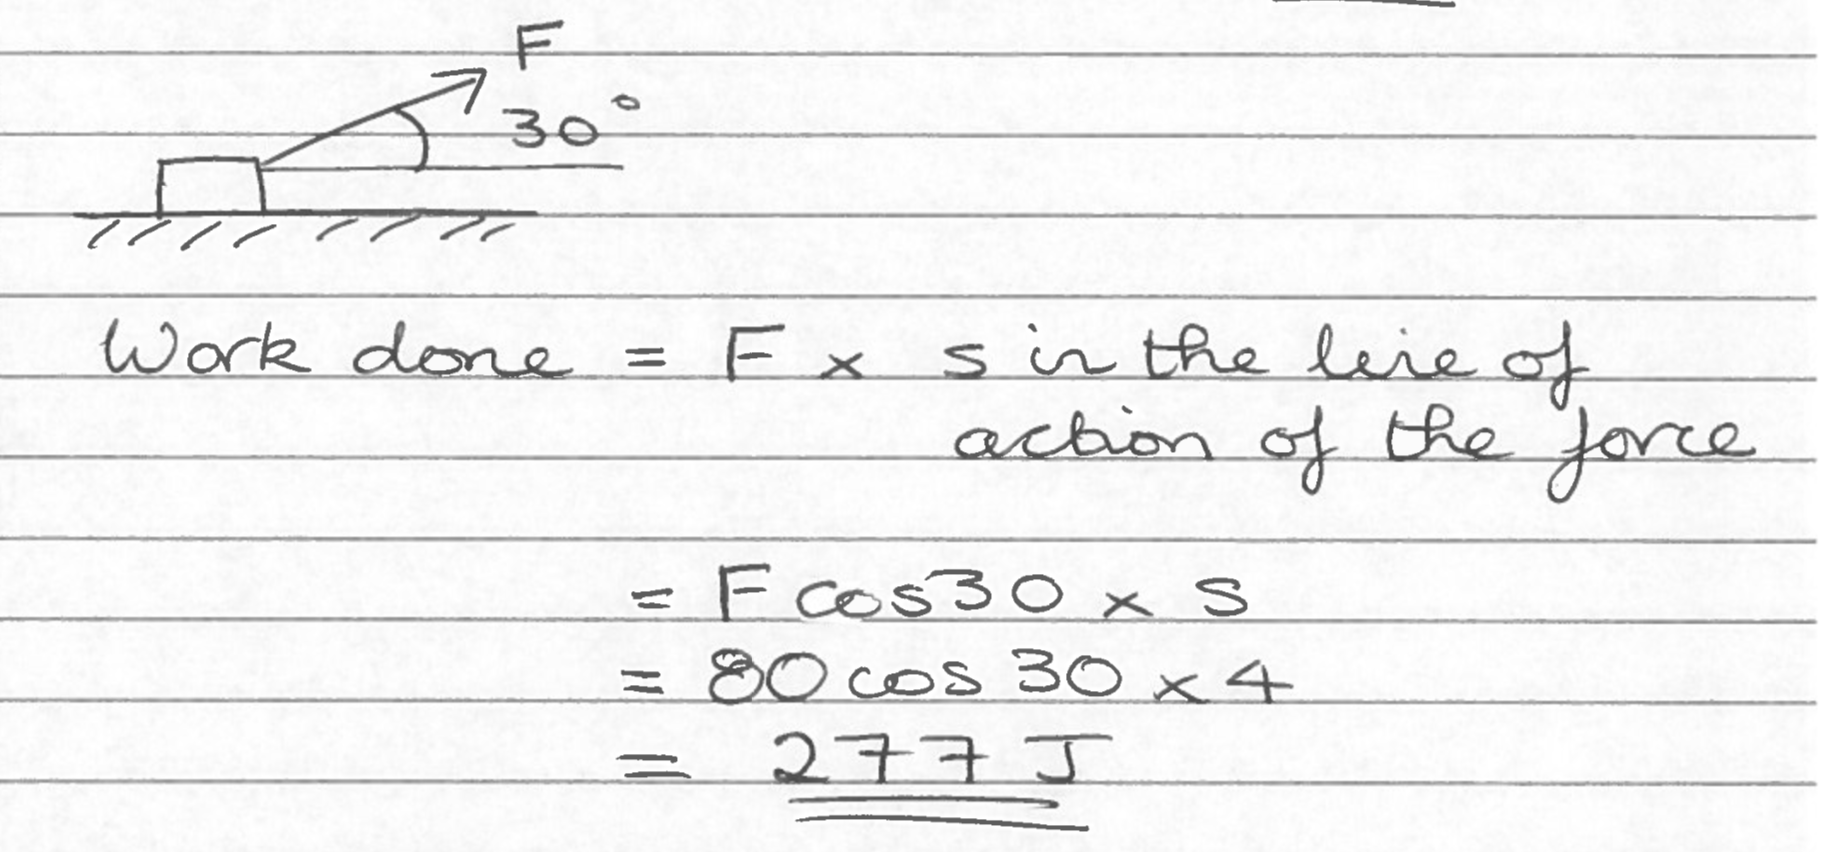 F
30°
Work done = F x s in the line of
action of the force
= F cos30 x s
= 80 cos 30 x 4
= 277 J